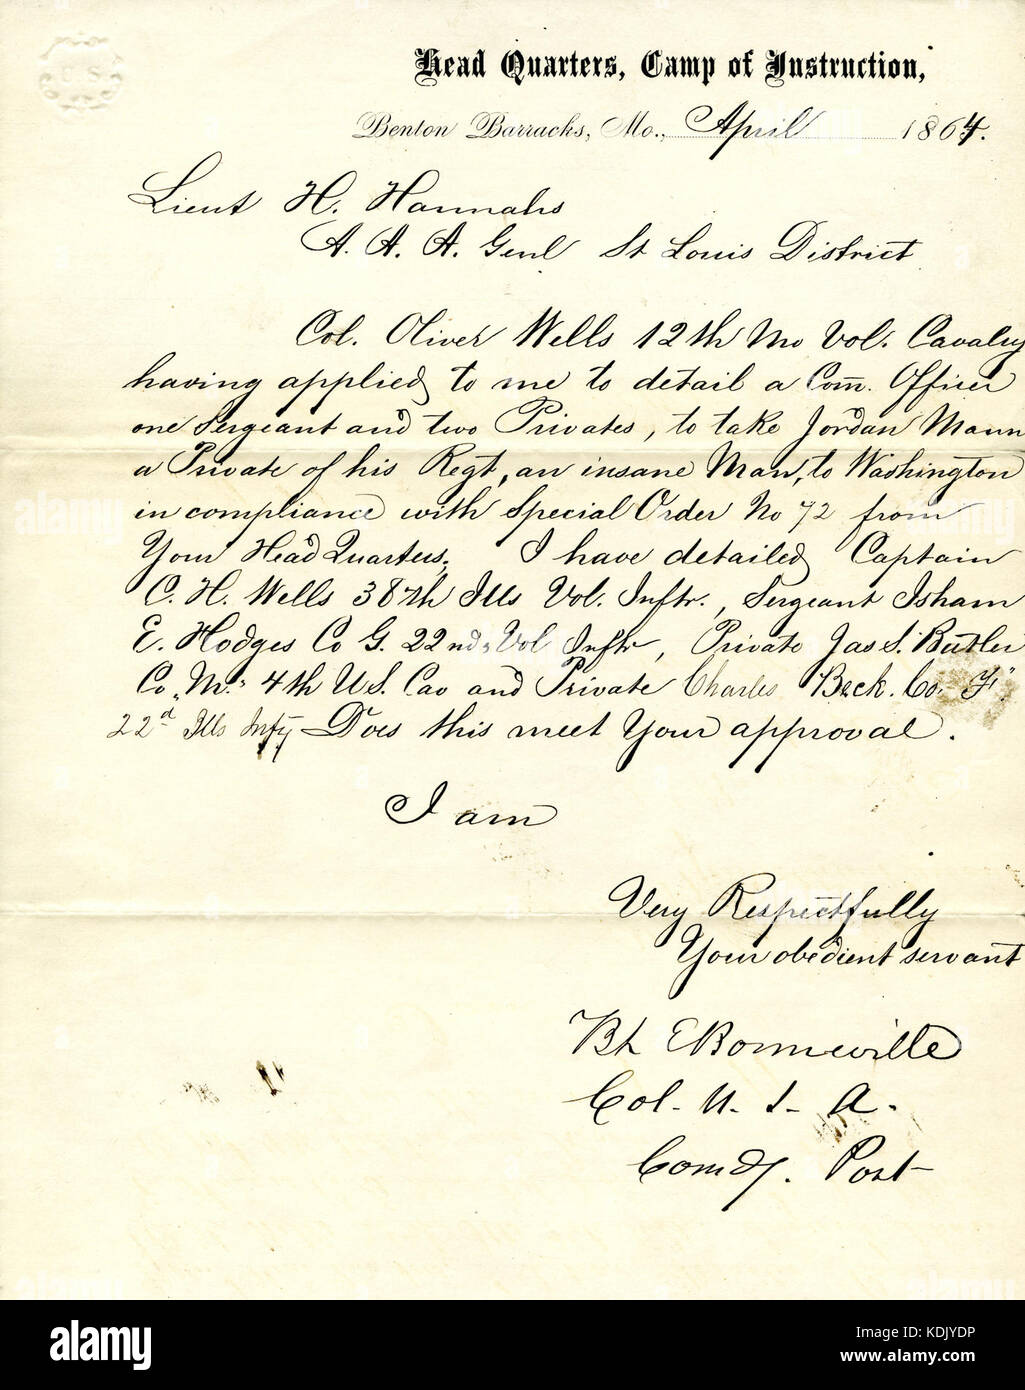 U.S.
Head Quarters, Camp of Instruction,
Benton Barracks, Mo., April 1864.
Lieut H. Hannahs
A. A. A. Genl St Louis District
Col. Oliver Wells 12th Mo Vol. Cavalry
having applied to me to detail a Com. Officer
one Sergeant and two Privates, to take Jordan Mann
a Private of his Regt, an insane Man, to Washington
in compliance with Special Order No 72 from
Your Head Quarters. I have detailed Captain
C. H. Wells 38th Ills Vol. Inftr., Sergeant Isham
E. Hodges Co G. 22nd Vol Inftr, Private Jas S. Butler
Co "M" 4th U.S. Cav and Private Charles Beck. Co "F"
22d Ills Infy Does this meet Your approval.
I am
Very Respectfully
Your obedient servant
BL E Bonneville
Col. U. S. A.
Comdg. Post
alamy
Image ID: KDJYDP
www.alamy.com